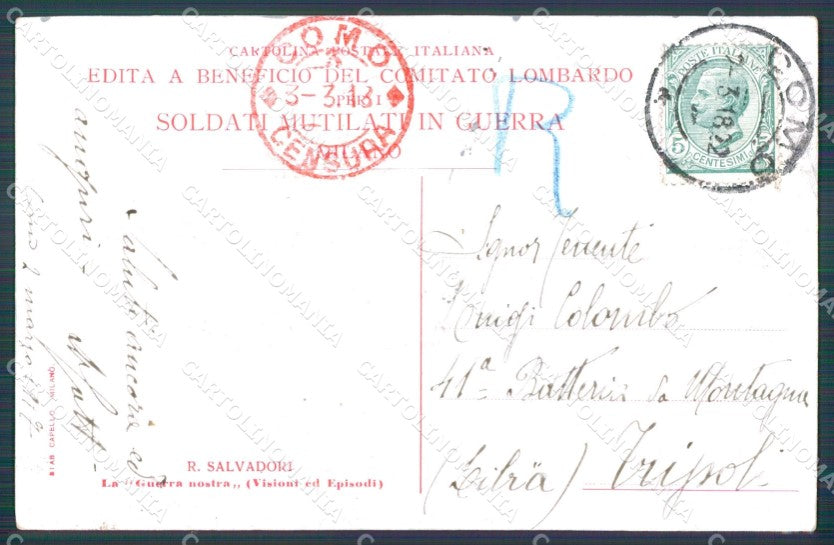 CARTOLINA POSTALE ITALIANA
EDITA A BENEFICIO DEL COMITATO LOMBARDO
PER I
SOLDATI MUTILATI IN GUERRA
MILANO
COMO
3-3.18
CENSURA
R
POSTE ITALIANE
CENTESIMI
5
COMO
3.18.22
Signor Tenente
Luigi Colombo
41ª Batteria da Montagna
(Libia) Tripoli
Saluti ancora ed
auguri
Como 2 marzo
STAB. CAPELLO - MILANO
R. SALVADORI
La "Guerra nostra" (Visioni ed Episodi)
CARTOLINOMANIA